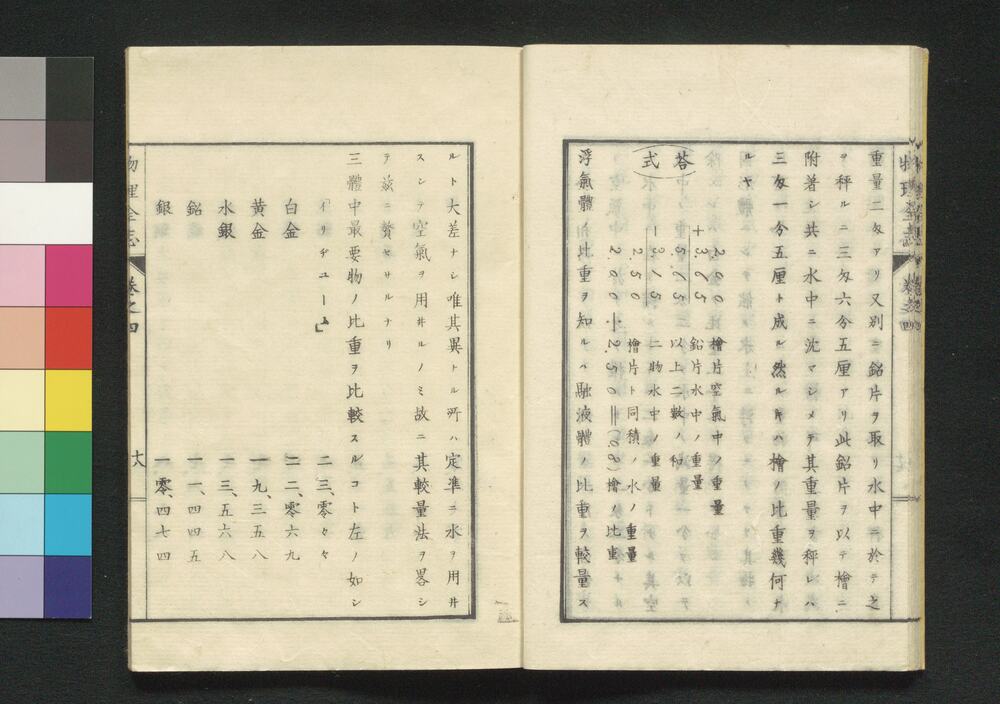 重量二匁アリ又別ニ鉛片ヲ取リ水中ニ於テ之
ヲ秤ルニ三匁六分五厘アリ此鉛片ヲ以テ檜ニ
附著シ共ニ水中ニ沈マシメテ其重量ヲ秤レハ
三匁一分五厘ト成ル然ルキハ檜ノ比重幾何ナ
ルヤ
答式
2.00 檜片空氣中ノ重量
+3.65 鉛片水中ノ重量
5.65 以上二數ノ和
-3.15 二物水中ノ重量
2.50 檜片ト同積ノ水ノ重量
2.00÷2.50=(0.8)檜ノ比重
浮氣體ノ比重ヲ知ルハ融液體ノ比重ヲ較量ス
ルト大差ナシ唯其異トル所ハ定準ニ水ヲ用井
スシテ空氣ヲ用井ルノミ故ニ其較量法ヲ畧シ
テ茲ニ贅セサルナリ
三體中最要物ノ比重ヲ比較スルコト左ノ如シ
イリヂユーム 二三、零々々
白金 二二、零六九
黄金 一九、三五八
水銀 一三、五六八
鉛 一一、四四五
銀 一零、四七四
物理全志 卷之四